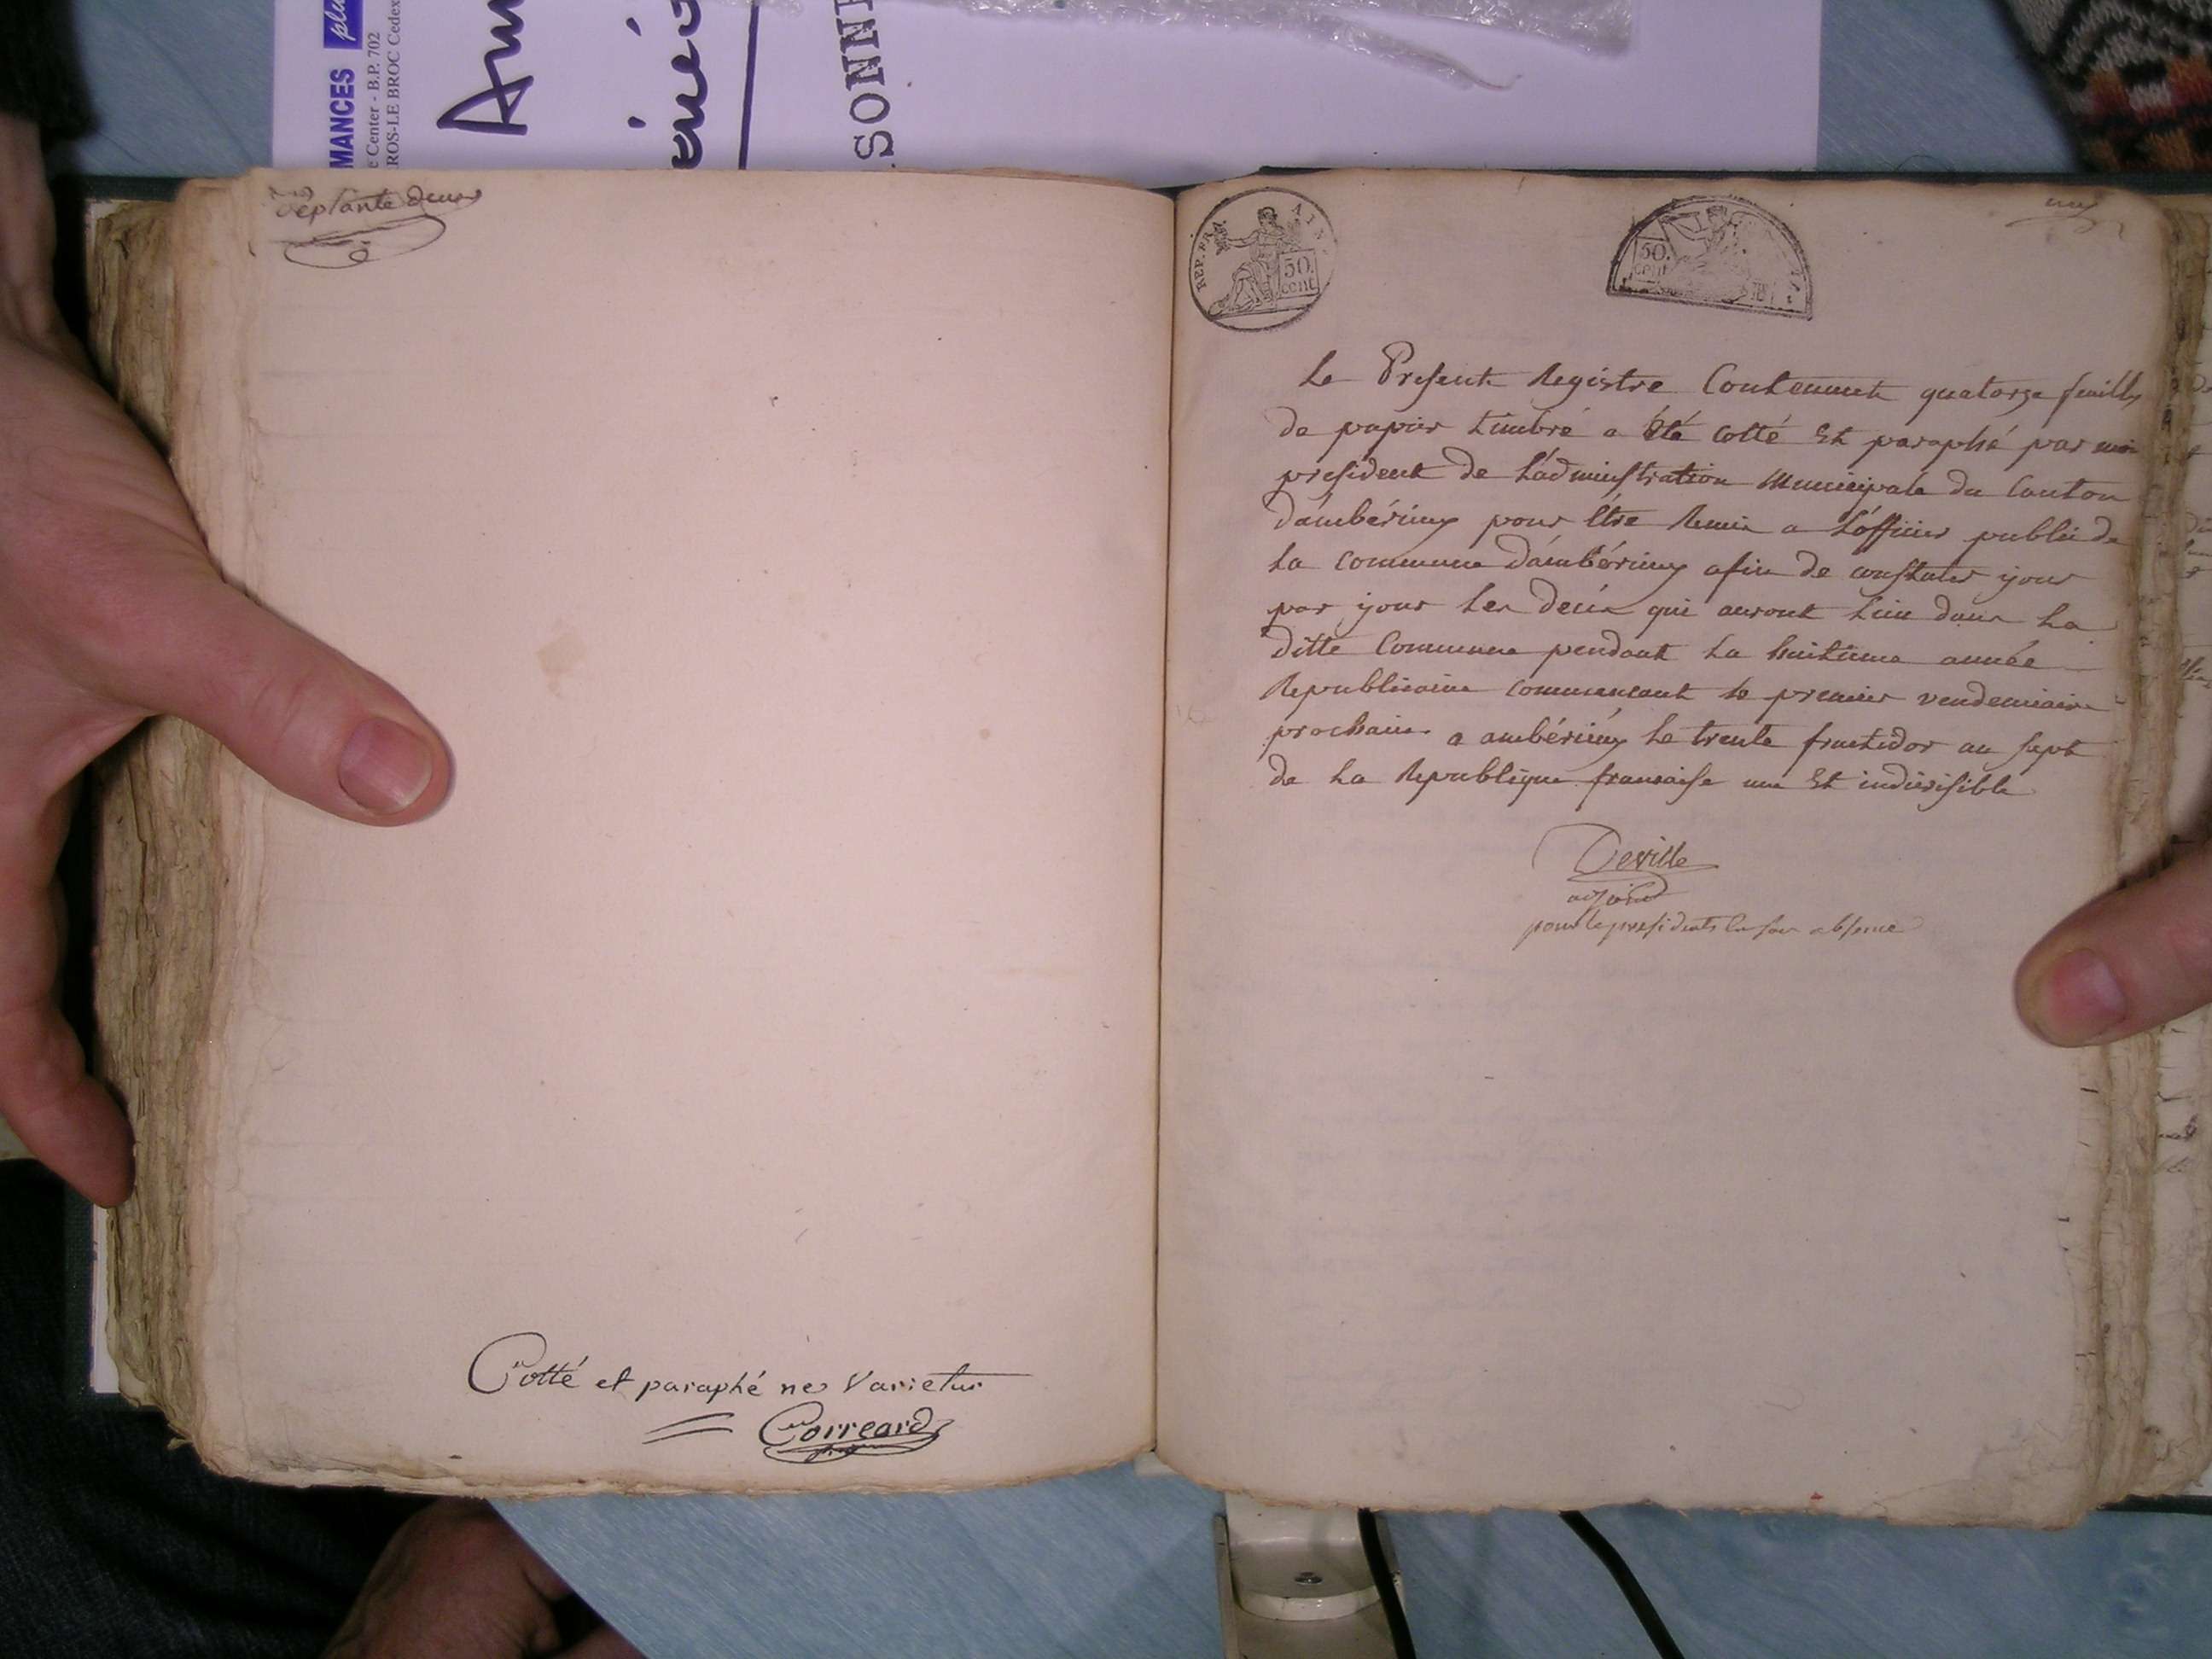 MANCES plu
e Center - B.P. 702
ROS-LE BROC Cedex
Am
énéa
SONN
Septante deux
Cotté et paraphé ne Varietur
Correard
REP. FRA
AIN
50.
cent
50.
cent
un
Le Présent Registre Contenant quatorze feuilles
de papier timbré a été cotté Et paraphé par moi
président de L'administration Municipale du Canton
d'ambérieux pour Etre Remis a L'officier public de
La commune d'ambérieux afin de constater jour
par jour Les decés qui auront Lieu dans La
ditte Commune pendant La huitieme année
Republicaine commencant le premier vendemiaire
prochain a ambérieux le trente fructidor an sept
de La Republique francaise une Et indivisible
Deville
adjoint
pour le president en son absence